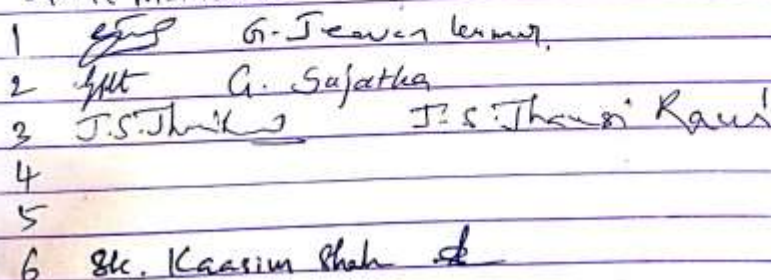 1 G. Jeevan kumar,
2 G. Sujatha
3 J.S. J.S. Jhansi Rani
4
5
6 Sk. Kaasim Shah